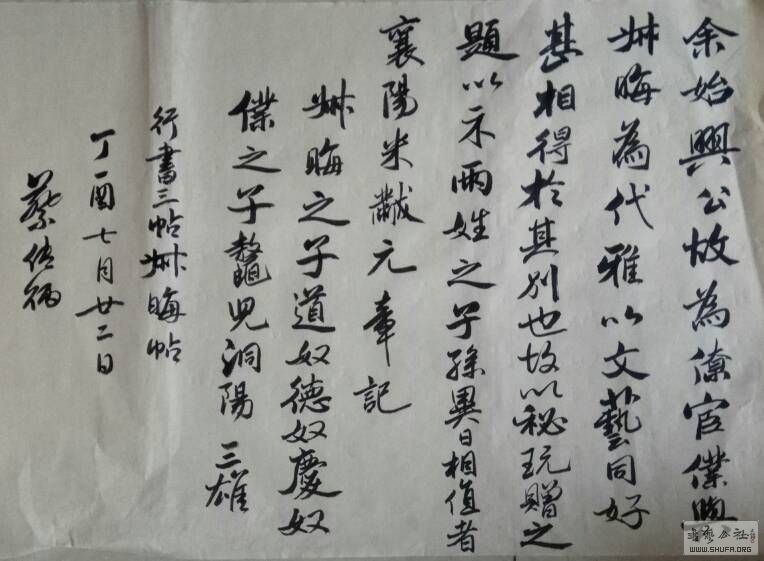 余始興公故為僚宦僕與
叔晦為代雅以文藝同好
甚相得於其別也故以秘玩贈之
題以示兩姓之子孫異日相值者
襄陽米黻元章記
叔晦之子道奴德奴慶奴
僕之子鼇兒洞陽三雄
行書三帖叔晦帖
丁酉七月廿二日
蔡
書藝公社
WWW.SHUFA.ORG